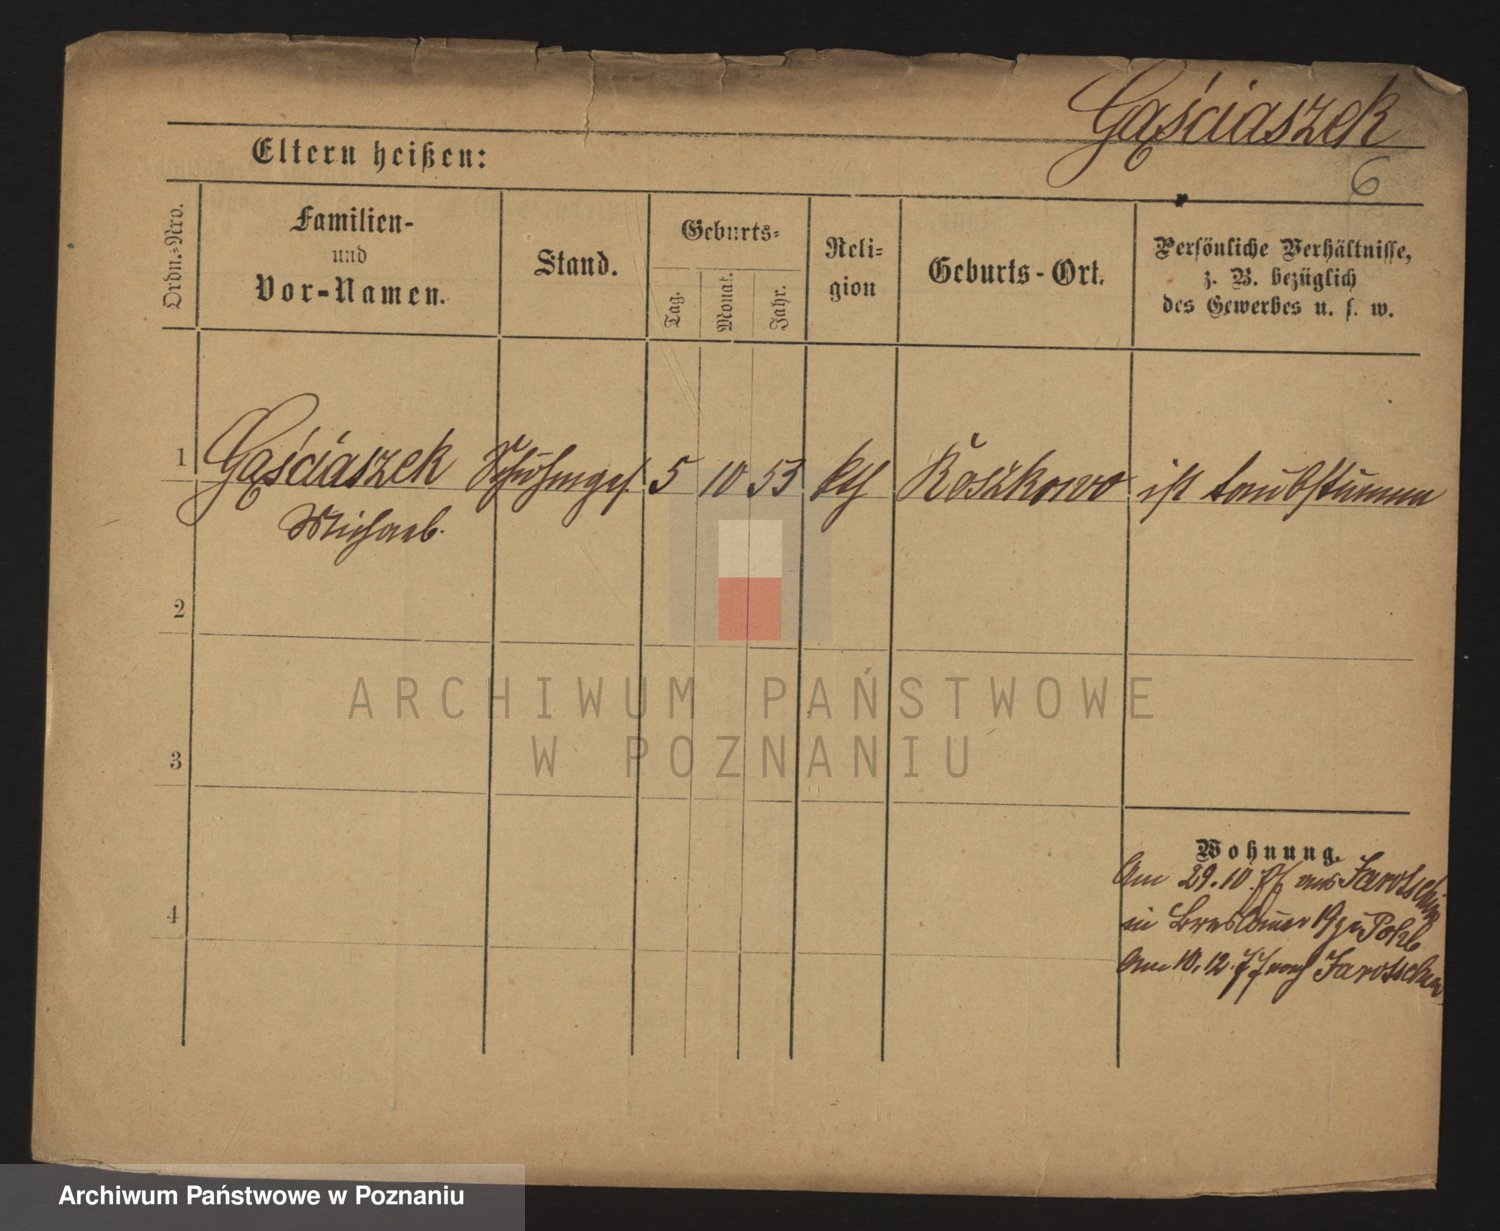 Gąściaszek
6
Eltern heißen:
Ordn.-Nro.
Familien-
und
Vor-Namen.
Stand.
Geburts-
Tag.
Monat.
Jahr.
Reli-
gion
Geburts-Ort.
Persönliche Verhältnisse,
z. B. bezüglich
des Gewerbes u. s. w.
1 Gąściaszek Schuhmges. 5 10 53 kth Roszkowo ist taubstumm
Michael.
2
ARCHIWUM PAŃSTWOWE
W POZNANIU
3
Wohnung.
Am 29.10.77 aus Jarotschin
in Breslauer 19 Pohl
4
Am 10.12.77 nach Jarotschin
Archiwum Państwowe w Poznaniu